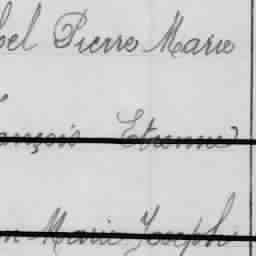 el Pierre Marie
ançois Etienne
n Marie Joseph